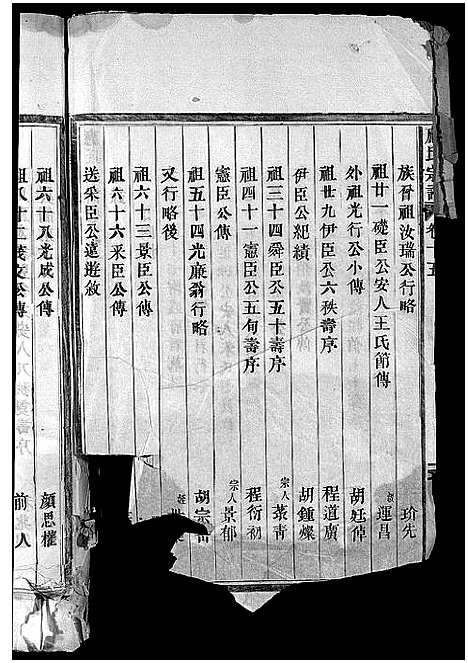 氏宗譜 卷十五
族晉祖汝瑞公行略 玠先
祖廿一礎臣公安人王氏節傳 運昌
外祖光行公小傳 胡廷倬
祖廿九伊臣公六秩壽序 程道廣
伊臣公紀績 胡鍾燦
祖三十四舜臣公五十壽序 宗人 蔡青
祖四十一憲臣公五旬壽序 程衍初
憲臣公傳 宗人 景郁
祖五十四光廉翁行略 胡宗
又行略後
祖六十三景臣公傳
祖六十六釆臣公傳
送采臣公遠遊敘
祖六十八光成公傳 顏思權
祖八十二茂文公傳 前人